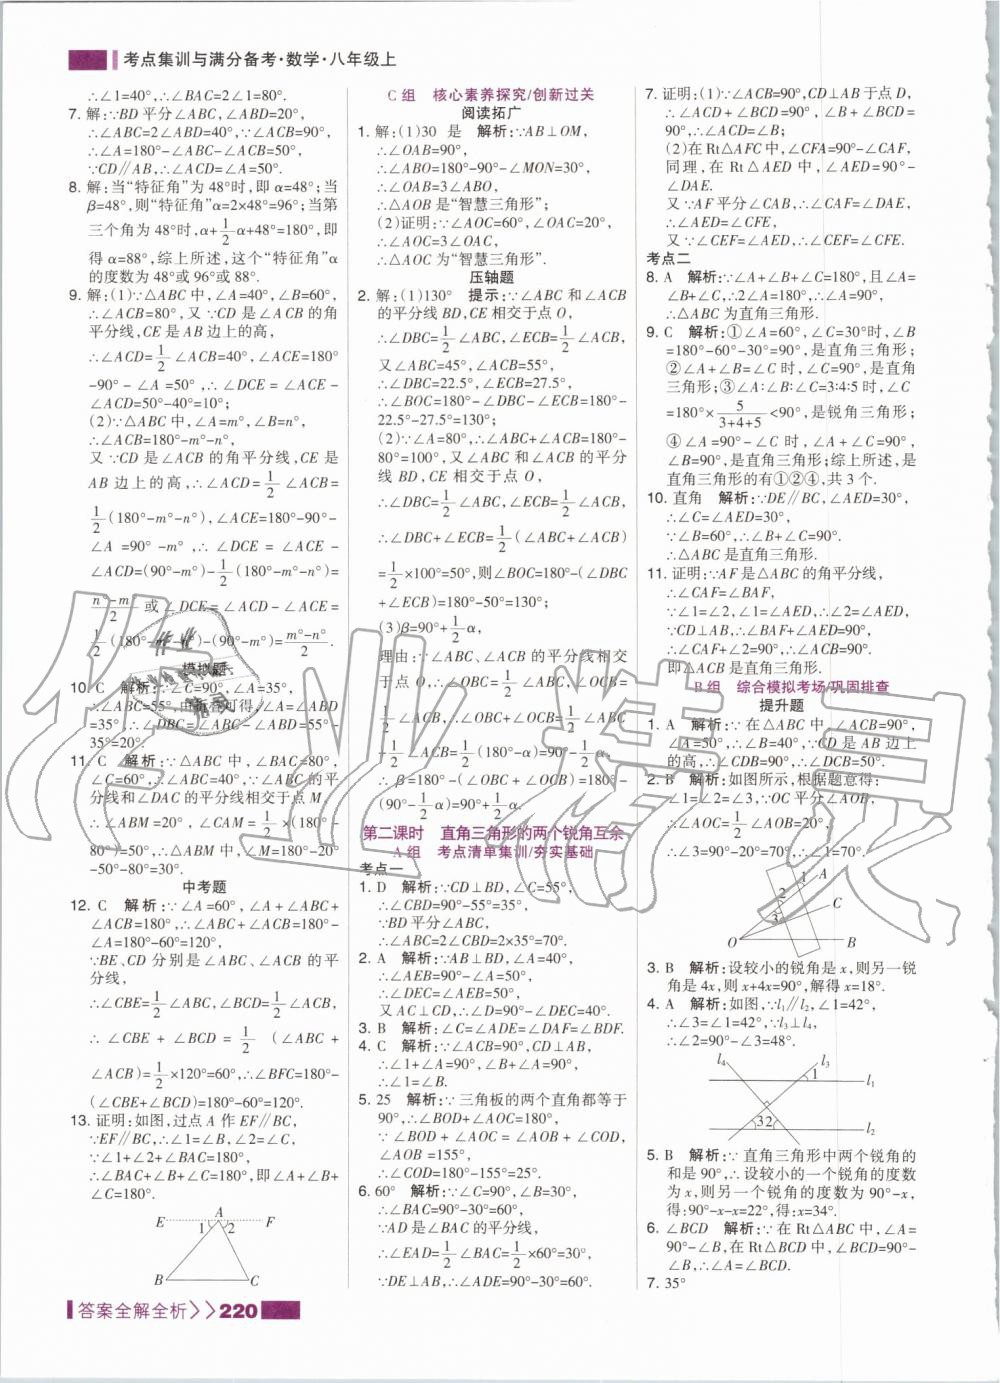 考点集训与满分备考·数学·八年级上
∴∠1=40°,∴∠BAC=2∠1=80°.
7. 解:∵BD平分∠ABC,∠ABD=20°,
∴∠ABC=2∠ABD=40°,∵∠ACB=90°,
∴∠A=180°-∠ABC-∠ACB=50°,
∵CD∥AB,∴∠ACD=∠A=50°.
8. 解:当“特征角”为48°时,即α=48°;当
β=48°,则“特征角”α=2×48°=96°;当第
三个角为48°时,α+1/2α+48°=180°,即
得α=88°,综上所述,这个“特征角”α
的度数为48°或96°或88°.
9. 解:(1)∵△ABC中,∠A=40°,∠B=60°,
∴∠ACB=80°,又∵CD是∠ACB的角
平分线,CE是AB边上的高,
∴∠ACD=1/2∠ACB=40°,∠ACE=180°
-90°-∠A=50°,∴∠DCE=∠ACE-
∠ACD=50°-40°=10°;
(2)∵△ABC中,∠A=m°,∠B=n°,
∴∠ACB=180°-m°-n°,
又∵CD是∠ACB的角平分线,CE是
AB边上的高,∴∠ACD=1/2∠ACB=
1/2(180°-m°-n°),∠ACE=180°-90°-
∠A=90°-m°,∴∠DCE=∠ACE-
∠ACD=(90°-m°)-1/2(180°-m°-n°)=
n°-m°/2或∠DCE=∠ACD-∠ACE=
1/2(180°-m°-n°)-(90°-m°)=m°-n°/2.
模拟题
10. C 解析:∵∠C=90°,∠A=35°,
∴∠ABC=55°,由折叠可得,∠A=∠ABD
=35°,∴∠DBC=∠ABC-∠ABD=55°-
35°=20°.
11. C 解析:∵△ABC中,∠BAC=80°,
∠C=60°,∴∠ABC=40°,∵∠ABC的平
分线和∠DAC的平分线相交于点M,
∴∠ABM=20°,∠CAM=1/2×(180°-
80°)=50°,∴△ABM中,∠M=180°-20°
-50°-80°=30°.
中考题
12. C 解析:∵∠A=60°,∠A+∠ABC+
∠ACB=180°,∴∠ABC+∠ACB=180°-
∠A=180°-60°=120°,
∵BE、CD分别是∠ABC、∠ACB的平
分线,
∴∠CBE=1/2∠ABC,∠BCD=1/2∠ACB,
∴∠CBE+∠BCD=1/2(∠ABC+
∠ACB)=1/2×120°=60°,∴∠BFC=180°-
(∠CBE+∠BCD)=180°-60°=120°.
13. 证明:如图,过点A作EF∥BC,
∵EF∥BC,∴∠1=∠B,∠2=∠C,
∵∠1+∠2+∠BAC=180°,
∴∠BAC+∠B+∠C=180°,即∠A+∠B+
∠C=180°.
E A F
1 2
B C
C组 核心素养探究/创新过关
阅读拓广
1. 解:(1)30 是 解析:∵AB⊥OM,
∴∠OAB=90°,
∴∠ABO=180°-90°-∠MON=30°,
∴∠OAB=3∠ABO,
∴△AOB是“智慧三角形”;
(2)证明:∵∠AOC=60°,∠OAC=20°,
∴∠AOC=3∠OAC,
∴△AOC为“智慧三角形”.
压轴题
2. 解:(1)130° 提示:∵∠ABC和∠ACB
的平分线BD,CE相交于点O,
∴∠DBC=1/2∠ABC,∠ECB=1/2∠ACB,
又∠ABC=45°,∠ACB=55°,
∴∠DBC=22.5°,∠ECB=27.5°,
∴∠BOC=180°-∠DBC-∠ECB=180°-
22.5°-27.5°=130°;
(2)∵∠A=80°,∴∠ABC+∠ACB=180°-
80°=100°,又∠ABC和∠ACB的平分
线BD,CE相交于点O,
∴∠DBC=1/2∠ABC,∠ECB=1/2∠ACB,
∴∠DBC+∠ECB=1/2(∠ABC+∠ACB)
=1/2×100°=50°,则∠BOC=180°-(∠DBC
+∠ECB)=180°-50°=130°;
(3)β=90°+1/2α,
理由:∵∠ABC、∠ACB的平分线相交
于点O,∴∠OBC=
1/2∠ACB,∴∠OBC+∠OCB=1/2∠ABC
+1/2∠ACB=1/2(180°-α)=90°-1/2α,
∴β=180°-(∠OBC+∠OCB)=180°-
(90°-1/2α)=90°+1/2α.
第二课时 直角三角形的两个锐角互余
A组 考点清单集训/夯实基础
考点一
1. D 解析:∵CD⊥BD,∠C=55°,
∴∠CBD=90°-55°=35°,
∵BD平分∠ABC,
∴∠ABC=2∠CBD=2×35°=70°.
2. A 解析:∵AB⊥BD,∠A=40°,
∴∠AEB=90°-∠A=50°,
∴∠DEC=∠AEB=50°,
又AC⊥CD,∴∠D=90°-∠DEC=40°.
3. B 解析:∠C=∠ADE=∠DAF=∠BDF.
4. C 解析:∵∠ACB=90°,CD⊥AB,
∴∠1+∠A=90°,∠B+∠A=90°,
∴∠1=∠B.
5. 25 解析:∵三角板的两个直角都等于
90°,∴∠BOD+∠AOC=180°,
∵∠BOD+∠AOC=∠AOB+∠COD,
∠AOB=155°,
∴∠COD=180°-155°=25°.
6. 60° 解析:∵∠C=90°,∠B=30°,
∴∠BAC=90°-30°=60°,
∵AD是∠BAC的平分线,
∴∠EAD=1/2∠BAC=1/2×60°=30°,
∵DE⊥AB,∴∠ADE=90°-30°=60°.
7. 证明:(1)∵∠ACB=90°,CD⊥AB于点D,
∴∠ACD+∠BCD=90°,∠B+∠BCD=
90°,∴∠ACD=∠B;
(2)在Rt△AFC中,∠CFA=90°-∠CAF,
同理,在Rt△AED中,∠AED=90°-
∠DAE.
又∵AF平分∠CAB,∴∠CAF=∠DAE,
∴∠AED=∠CFE,
又∵∠CEF=∠AED,∴∠CEF=∠CFE.
考点二
8. A 解析:∵∠A+∠B+∠C=180°,且∠A=
∠B+∠C,∴2∠A=180°,∴∠A=90°,
∴△ABC为直角三角形.
9. C 解析:①∠A=60°,∠C=30°时,∠B
=180°-60°-30°=90°,是直角三角形;
②∠A+∠B=∠C时,∠C=90°,是直角
三角形;③∠A∶∠B∶∠C=3∶4∶5时,∠C
=180°×5/3+4+5<90°,是锐角三角形;
④∠A=90°-∠C时,∠A+∠C=90°,
∠B=90°,是直角三角形;综上所述,是
直角三角形的有①②④,共3个.
10. 直角 解析:∵DE∥BC,∠AED=30°,
∴∠C=∠AED=30°,
∵∠B=60°,∴∠B+∠C=90°.
∴△ABC是直角三角形.
11. 证明:∵AF是△ABC的角平分线,
∴∠CAF=∠BAF,
∵∠1=∠2,∠1=∠AED,∴∠2=∠AED,
∵CD⊥AB,∴∠BAF+∠AED=90°,
∴∠CAF+∠2=90°,∴∠ACB=90°.
即△ACB是直角三角形.
B组 综合模拟考场/巩固排查
提升题
1. A 解析:∵在△ABC中,∠ACB=90°,
∠A=50°,∴∠B=40°,∵CD是AB边上
的高,∴∠CDB=90°,∴∠DCB=50°.
2. B 解析:如图所示,根据题意得:
∠1=∠2=∠3,∵OC平分∠AOB,
∴∠AOC=1/2∠AOB=20°,
∴∠3=90°-20°=70°,∴∠1=70°.
1 A
2 C
3
O B
3. B 解析:设较小的锐角是x,则另一锐
角是4x,则x+4x=90°,解得x=18°.
4. A 解析:如图,∵l₁∥l₂,∠1=42°,
∴∠3=∠1=42°,∵l₃⊥l₄,
∴∠2=90°-∠3=48°.
l₄ l₃
1 l₁
3 2 l₂
5. B 解析:∵直角三角形中两个锐角的
和是90°,∴设较小的一个锐角的度数
为x,则另一个锐角的度数为90°-x,
得:90°-x-x=22°,得:x=34°.
6. ∠BCD 解析:∵在Rt△ABC中,∠A=
90°-∠B,在Rt△BCD中,∠BCD=90°-
∠B,∴∠A=∠BCD.
7. 35°
答案全解全析>>220